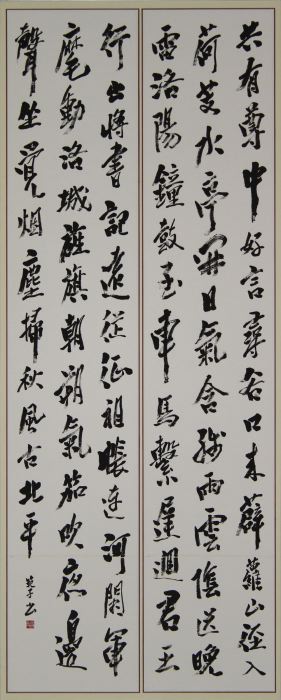 共有尊中好言尋谷口来薜蘿山徑入
荷芰水亭開日氣含殘雨雲陰送晚
雷洛陽鐘鼓至車馬繫遲迴君王
行出將書記遠從征祖帳連河闕軍
麾動洛城旌旗朝朔氣笳吹夜邊
聲坐覺烟塵掃秋風古北平